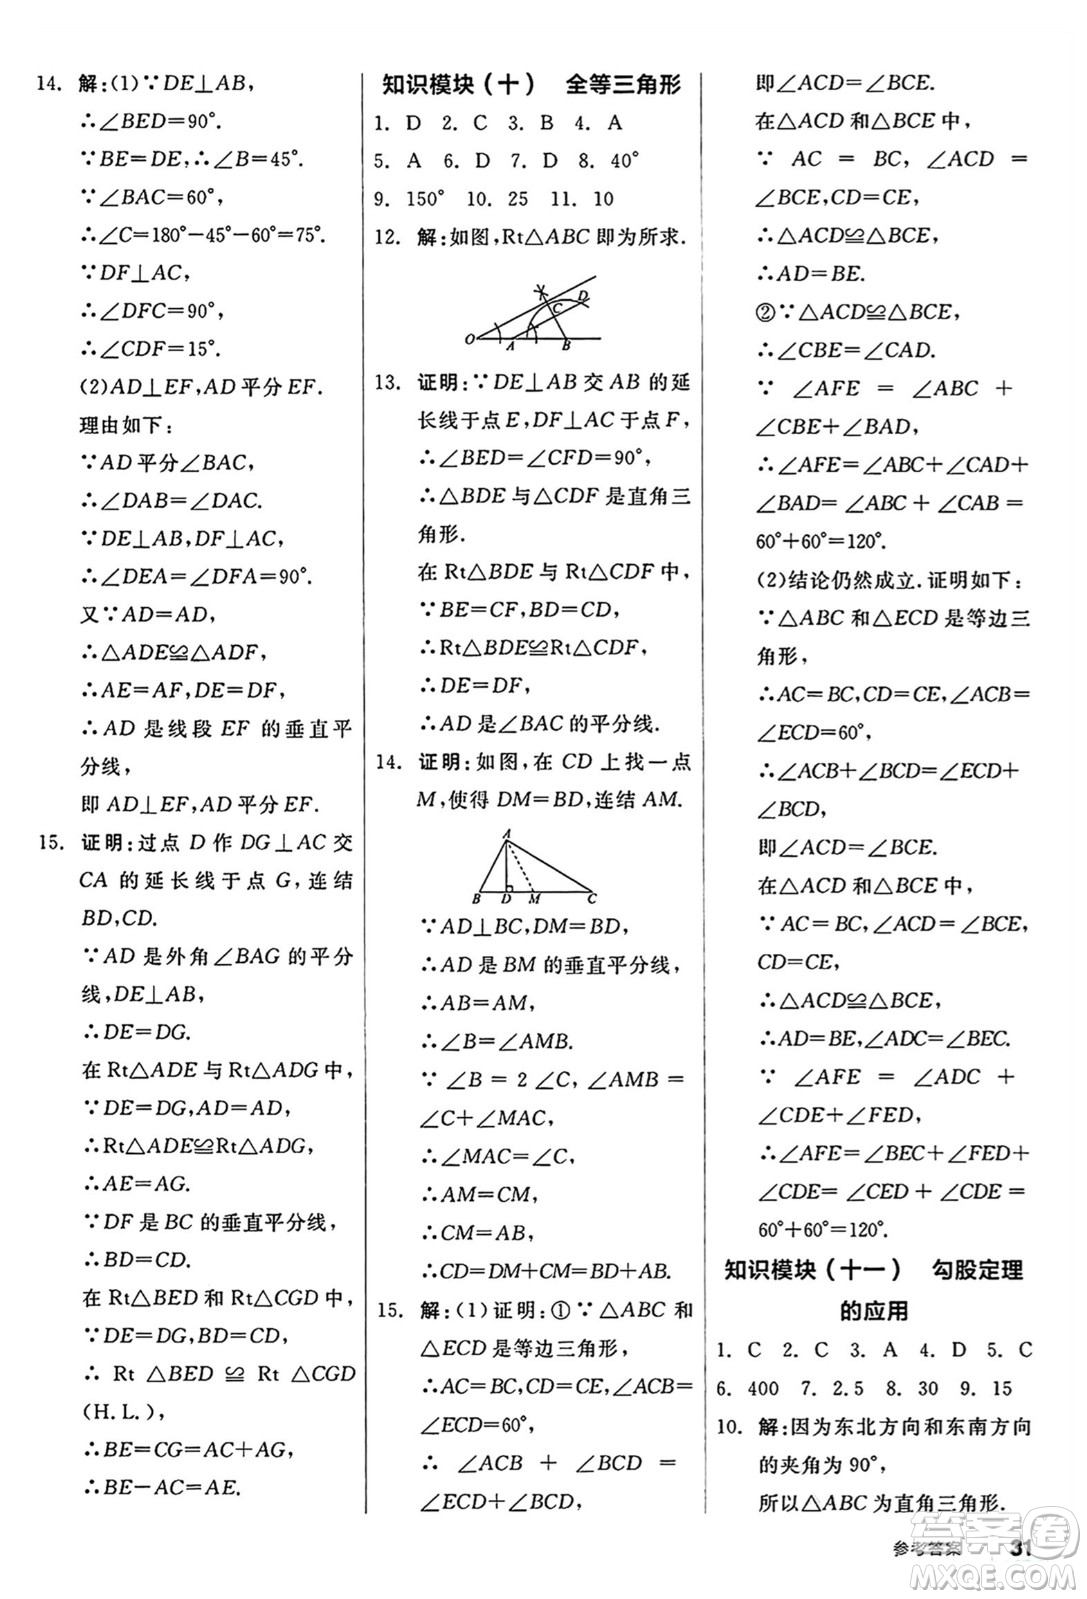 14. 解:(1)∵DE⊥AB,
∴∠BED=90°.
∵BE=DE,∴∠B=45°.
∵∠BAC=60°,
∴∠C=180°-45°-60°=75°.
∵DF⊥AC,
∴∠DFC=90°,
∴∠CDF=15°.
(2)AD⊥EF,AD平分EF.
理由如下:
∵AD平分∠BAC,
∴∠DAB=∠DAC.
∵DE⊥AB,DF⊥AC,
∴∠DEA=∠DFA=90°.
又∵AD=AD,
∴△ADE≌△ADF,
∴AE=AF,DE=DF,
∴AD是线段EF的垂直平
分线,
即AD⊥EF,AD平分EF.
15. 证明:过点D作DG⊥AC交
CA的延长线于点G,连结
BD,CD.
∵AD是外角∠BAG的平分
线,DE⊥AB,
∴DE=DG.
在Rt△ADE与Rt△ADG中,
∵DE=DG,AD=AD,
∴Rt△ADE≌Rt△ADG,
∴AE=AG.
∵DF是BC的垂直平分线,
∴BD=CD.
在Rt△BED和Rt△CGD中,
∵DE=DG,BD=CD,
∴Rt△BED≌Rt△CGD
(H.L.),
∴BE=CG=AC+AG,
∴BE-AC=AE.
知识模块(十) 全等三角形
1. D 2. C 3. B 4. A
5. A 6. D 7. D 8. 40°
9. 150° 10. 25 11. 10
12. 解:如图,Rt△ABC即为所求.
O A B C D
13. 证明:∵DE⊥AB交AB的延
长线于点E,DF⊥AC于点F,
∴∠BED=∠CFD=90°,
∴△BDE与△CDF是直角三
角形.
在Rt△BDE与Rt△CDF中,
∵BE=CF,BD=CD,
∴Rt△BDE≌Rt△CDF,
∴DE=DF,
∴AD是∠BAC的平分线.
14. 证明:如图,在CD上找一点
M,使得DM=BD,连结AM.
A
B D M C
∵AD⊥BC,DM=BD,
∴AD是BM的垂直平分线,
∴AB=AM,
∴∠B=∠AMB.
∵∠B=2∠C,∠AMB=
∠C+∠MAC,
∴∠MAC=∠C,
∴AM=CM,
∴CM=AB,
∴CD=DM+CM=BD+AB.
15. 解:(1)证明:①∵△ABC和
△ECD是等边三角形,
∴AC=BC,CD=CE,∠ACB=
∠ECD=60°,
∴∠ACB+∠BCD=
∠ECD+∠BCD,
即∠ACD=∠BCE.
在△ACD和△BCE中,
∵AC=BC,∠ACD=
∠BCE,CD=CE,
∴△ACD≌△BCE,
∴AD=BE.
②∵△ACD≌△BCE,
∴∠CBE=∠CAD.
∵∠AFE=∠ABC+
∠CBE+∠BAD,
∴∠AFE=∠ABC+∠CAD+
∠BAD=∠ABC+∠CAB=
60°+60°=120°.
(2)结论仍然成立.证明如下:
∵△ABC和△ECD是等边三
角形,
∴AC=BC,CD=CE,∠ACB=
∠ECD=60°,
∴∠ACB+∠BCD=∠ECD+
∠BCD,
即∠ACD=∠BCE.
在△ACD和△BCE中,
∵AC=BC,∠ACD=∠BCE,
CD=CE,
∴△ACD≌△BCE,
∴AD=BE,∠ADC=∠BEC.
∵∠AFE=∠ADC+
∠CDE+∠FED,
∴∠AFE=∠BEC+∠FED+
∠CDE=∠CED+∠CDE=
60°+60°=120°.
知识模块(十一) 勾股定理
的应用
1. C 2. C 3. A 4. D 5. C
6. 400 7. 2.5 8. 30 9. 15
10. 解:因为东北方向和东南方向
的夹角为90°,
所以△ABC为直角三角形.
参考答案 31
答案圈
MXQE.COM